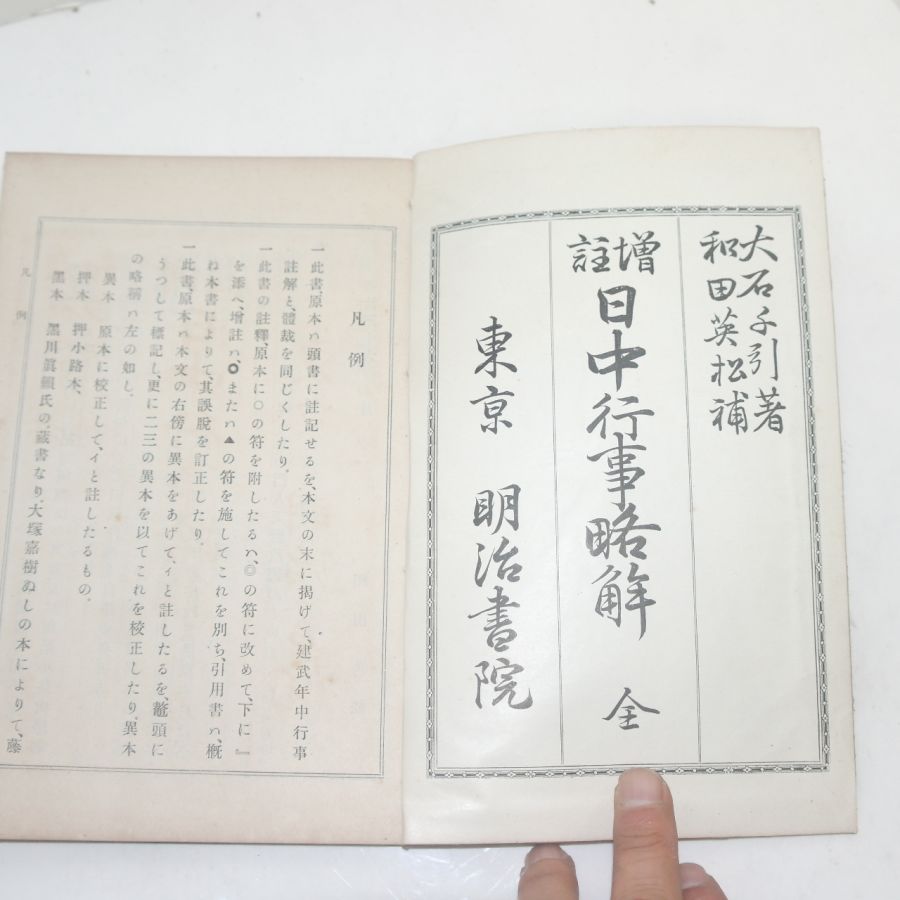 大石千引著
和田英松補
增註
日中行事略解 全
東京 明治書院
凡例
一此書、原本ハ頭書に註記せるを、本文の末に揭げて、建武年中行事
註解と、體裁を同じくしたり。
一此書の註釋、原本に○の符を附したるハ、◎の符に改めて、下に』
を添へ、增註ハ、○またハ▲の符を施してこれを別ち、引用書ハ、概
ね本書によりて、其誤脫を訂正したり。
一此書、原本ハ本文の右傍に異本をあげて、イと註したるを、鼇頭に
うつして標記し、更に二三の異本を以てこれを校正したり。異本
の略稱ハ左の如し。
異本 原本に校正して、イと註したるもの。
押本 押小路本、
黑本 黑川眞賴氏の藏書なり、大塚嘉樹ぬしの本によりて、藤
凡例